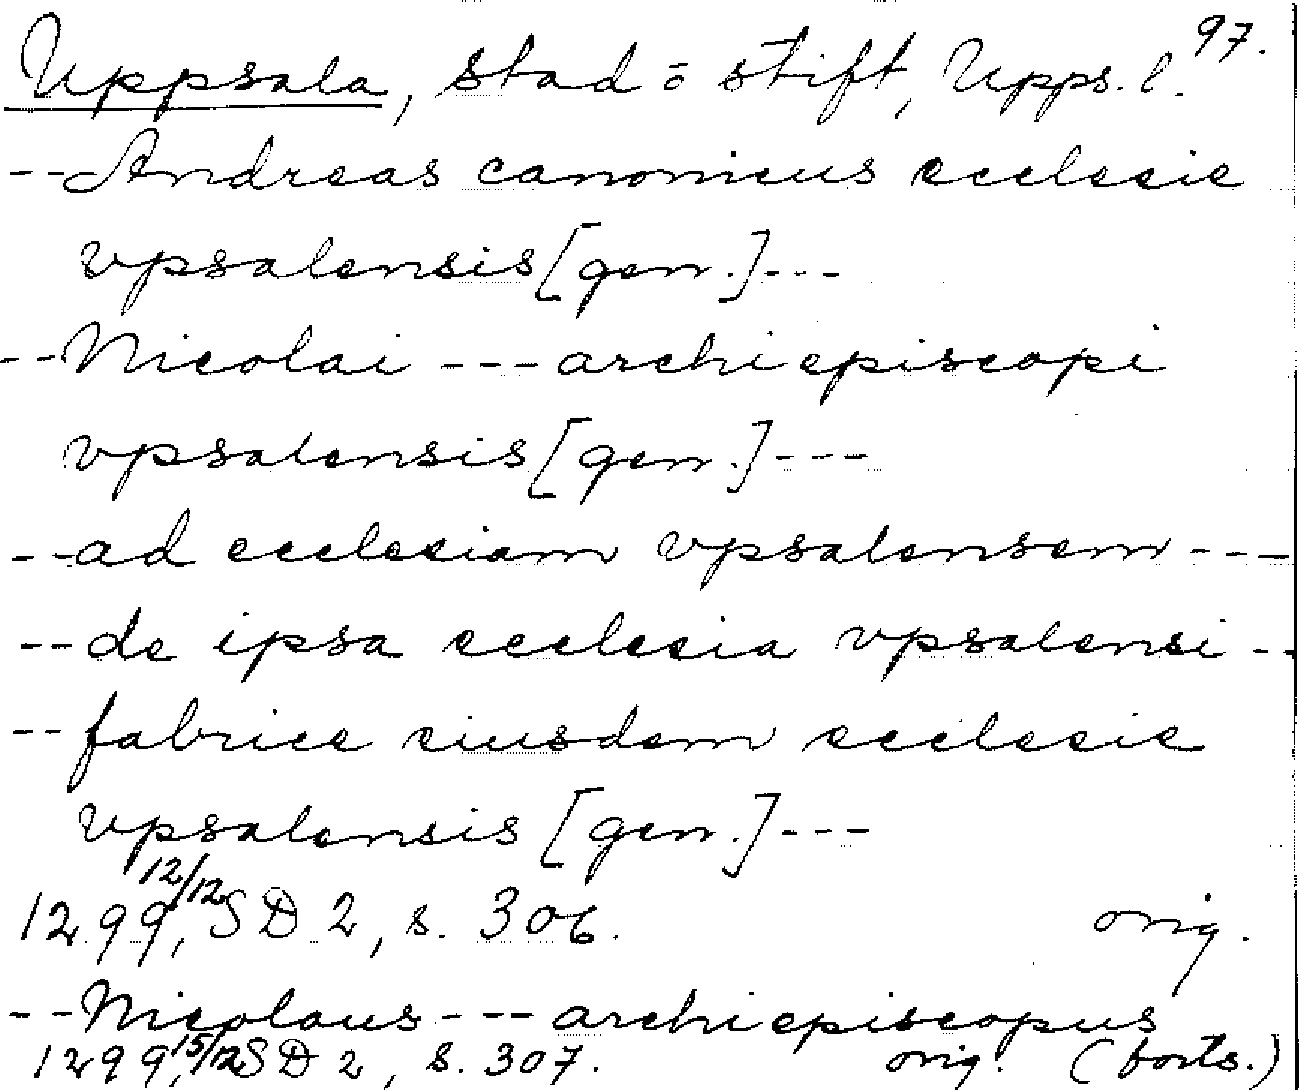 Uppsala, stad o stift, Upps. l. 97.
--Andreas canonicus ecclesie
vpsalensis [gen.]---
--Nicolai --- archiepiscopi
vpsalensis [gen.]---
--ad ecclesiam vpsalensem ---
--de ipsa ecclesia vpsalensi --
--fabrice eiusdem ecclesie
vpsalensis [gen.]---
1299 12/12, SD 2, s. 306. orig.
--Nicolaus --- archiepiscopus
1299 15/12, SD 2, s. 307. orig. (forts.)